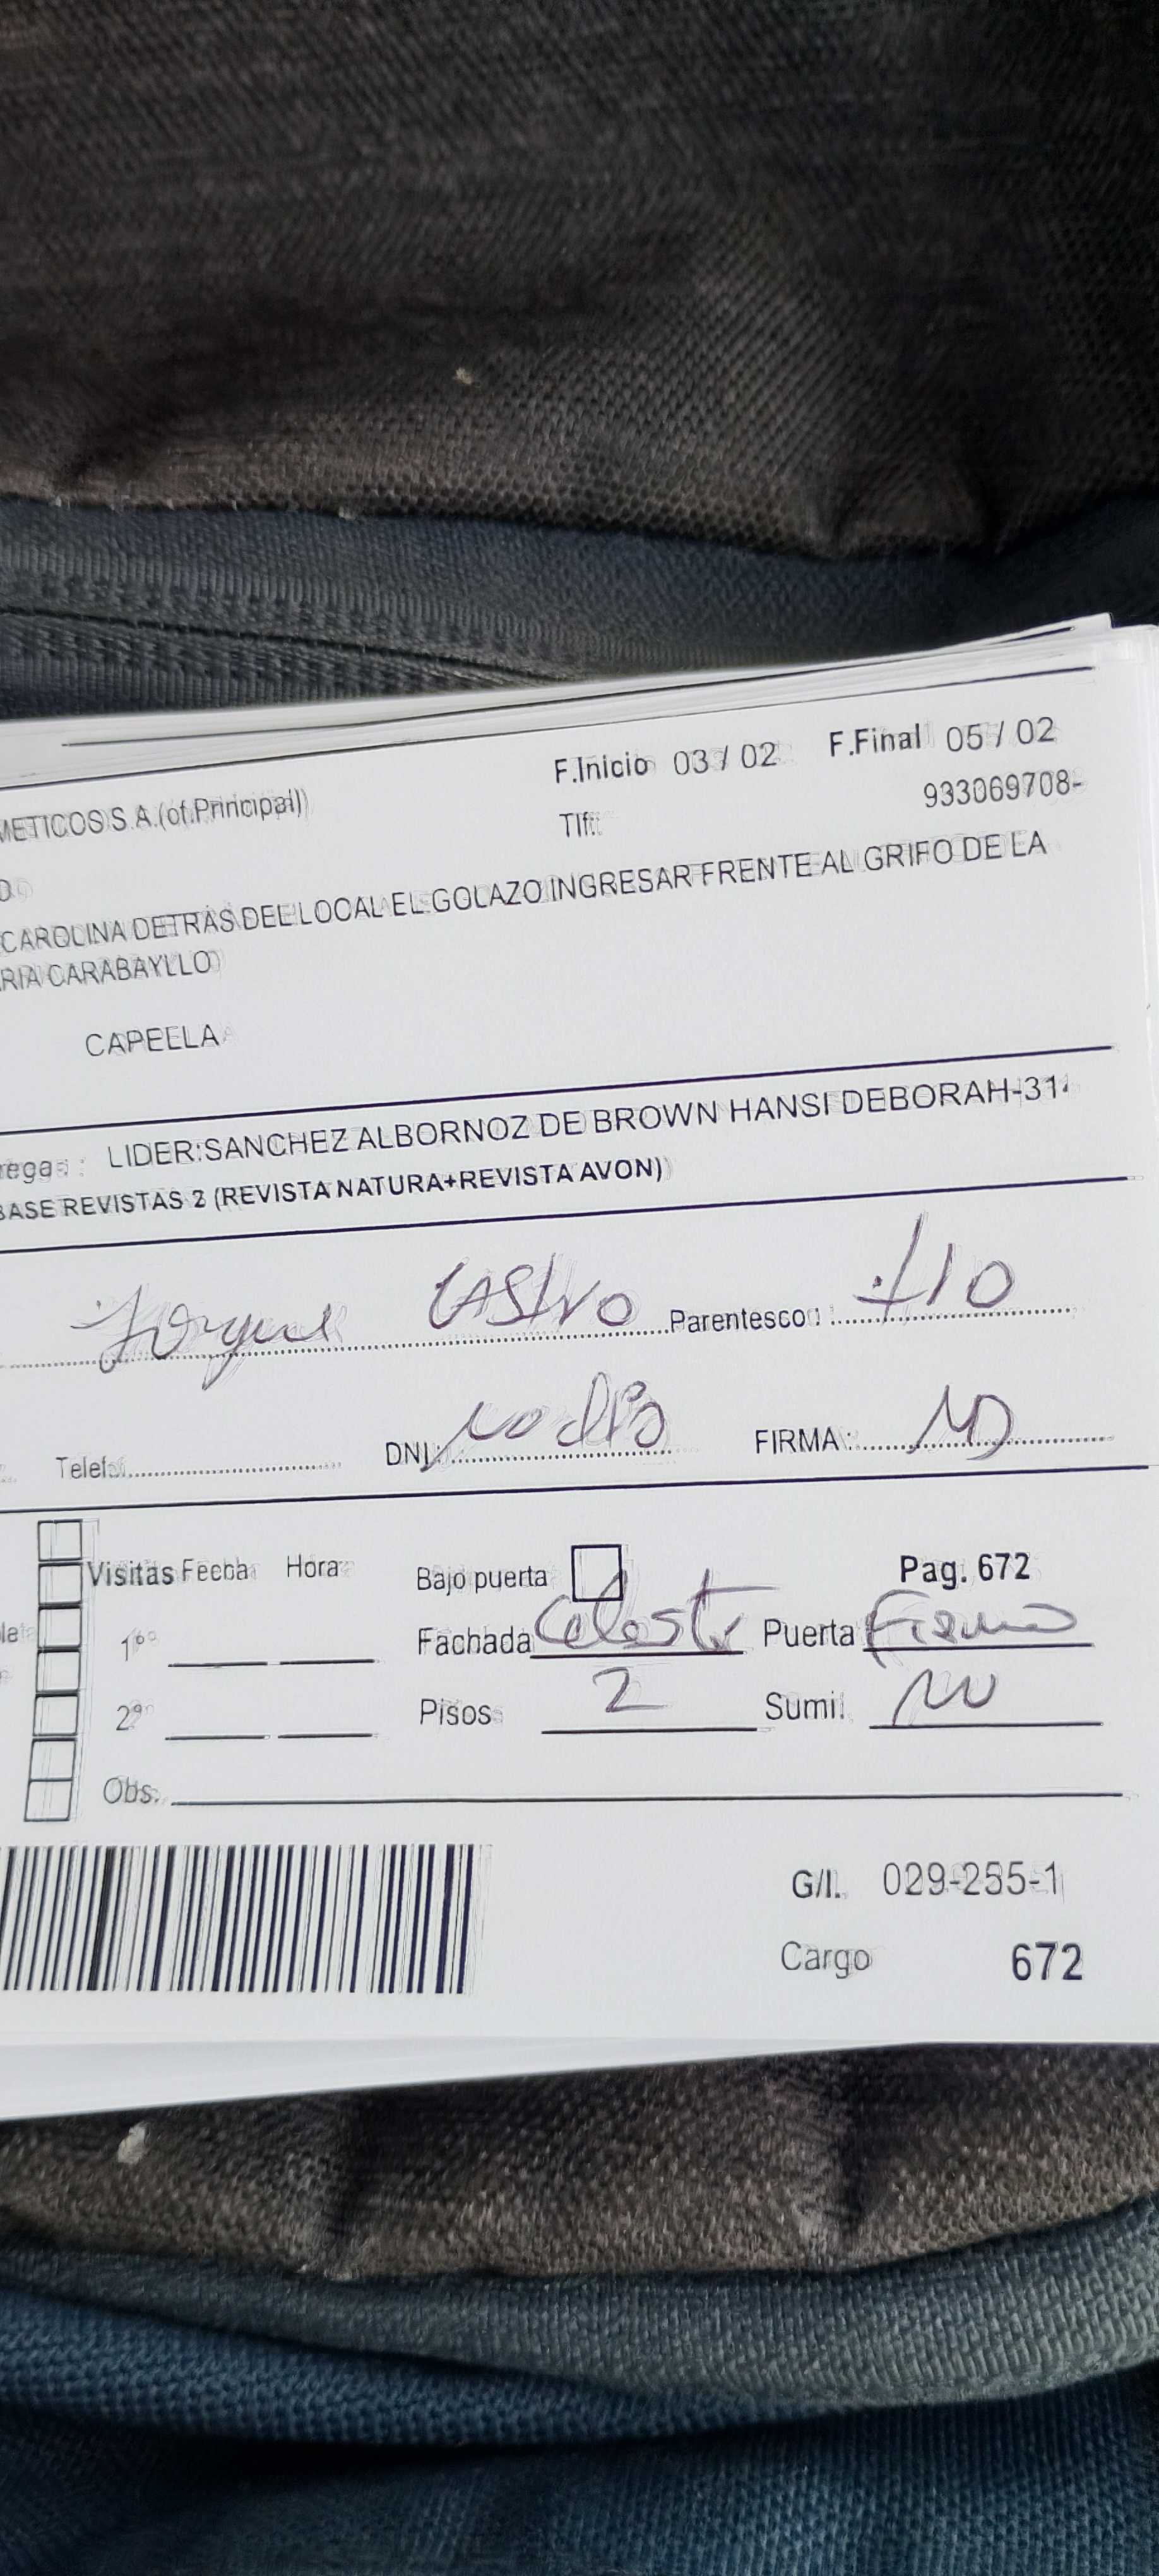 F.Inicio 03 / 02 F.Final 05 / 02
METICOS S A.(of.Principal)
Tlf: 933069708-
CAROLINA DETRAS DEL LOCAL EL GOLAZO INGRESAR FRENTE AL GRIFO DE LA
RIA CARABAYLLO
CAPELLA
regas : LIDER:SANCHEZ ALBORNOZ DE BROWN HANSI DEBORAH-31
BASE REVISTAS 2 (REVISTA NATURA+REVISTA AVON)
Castro Parentesco : tio
Telef. DNI: no dio FIRMA :
Visitas Fecha Hora Bajo puerta Pag. 672
1º Fachada Celeste Puerta Fierro
2º Pisos 2 Sumi.
Obs.
G/I. 029-255-1
Cargo 672